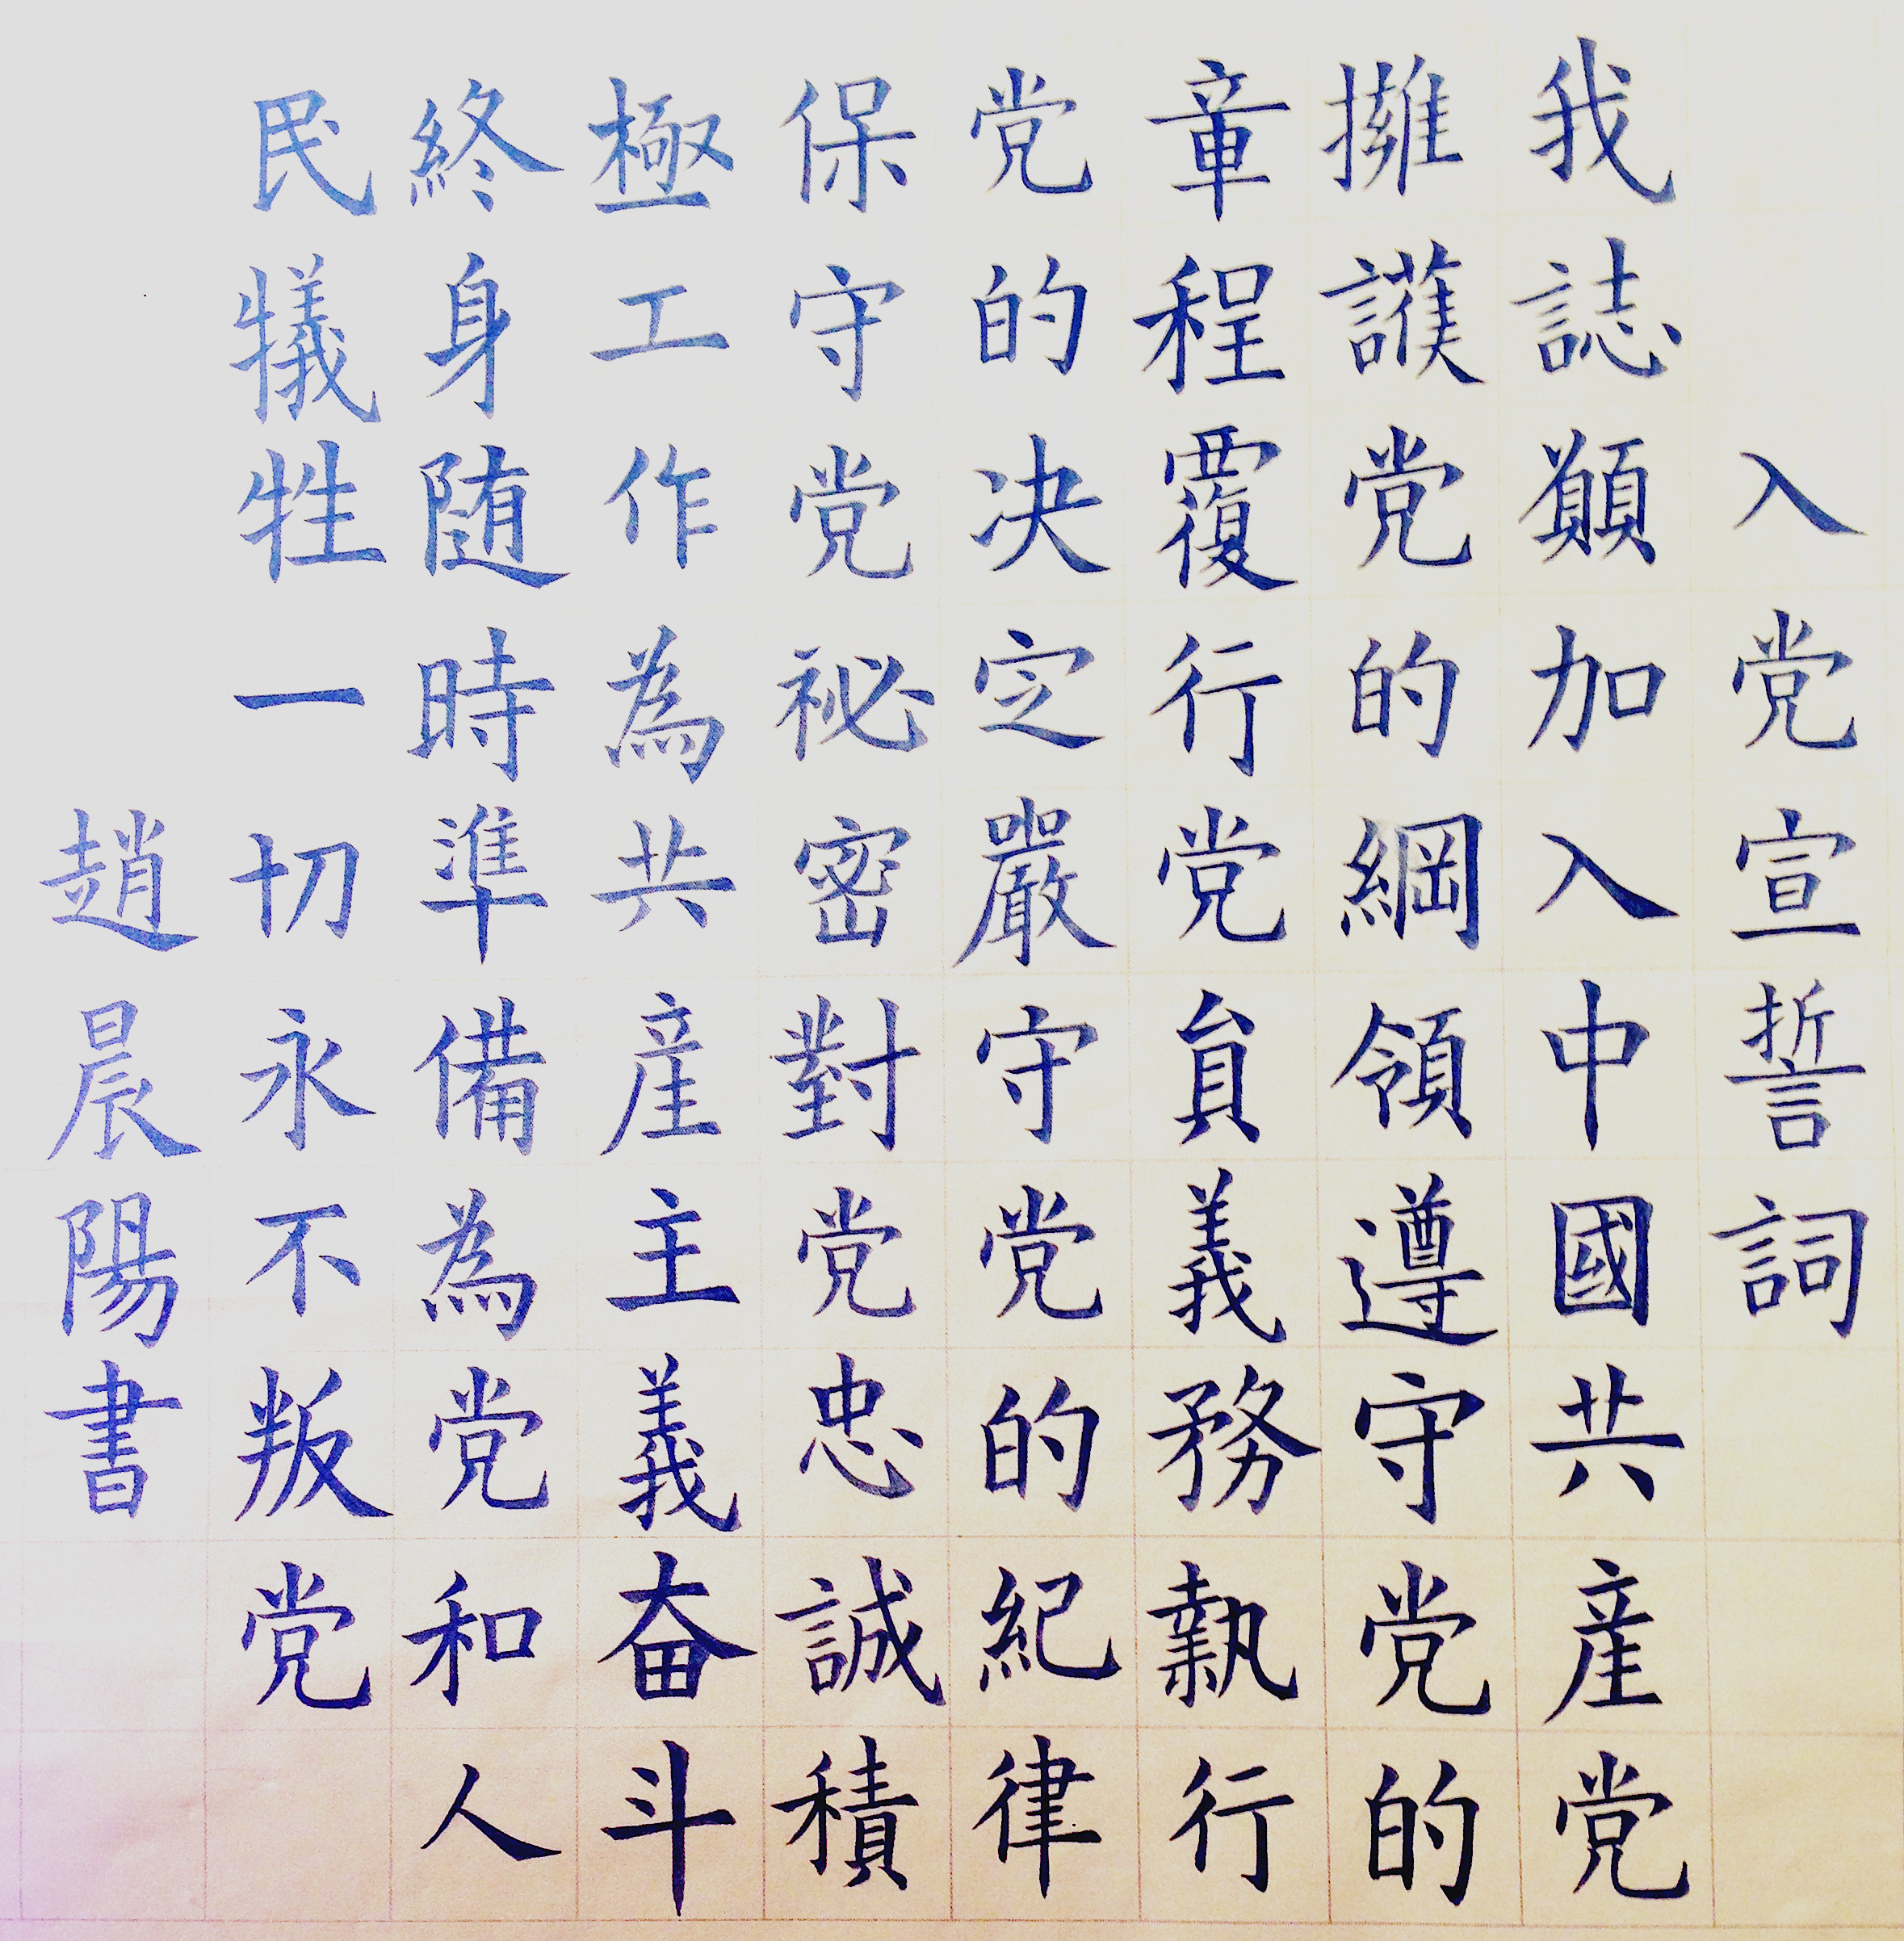 入党宣誓詞
我誌願加入中國共産党
擁護党的綱領遵守党的
章程覆行党員義務執行
党的决定嚴守党的紀律
保守党祕密對党忠誠積
極工作為共産主義奋斗
終身随時準備為党和人
民犠牲一切永不叛党
趙晨陽書